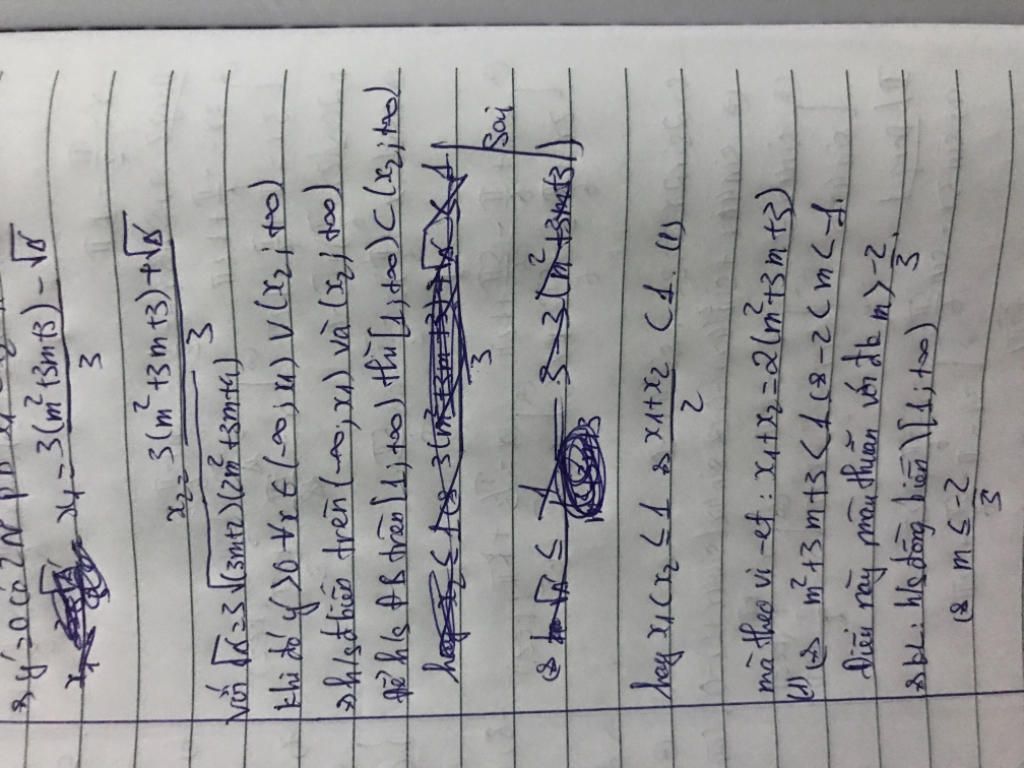 => y'=0 có 2 N pb x1
x1 = 3(m²+3m+3) - √Δ / 3
x2 = 3(m²+3m+3) + √Δ / 3
với √Δ = 3√(3m+2)(2m²+3m+4)
Khi đó y'>0 ∀x ∈ (-∞; x1) ∨ (x2; +∞)
=> h/s đ biến trên (-∞, x1) và (x2; +∞)
Để h/s ĐB trên [1; +∞) thì [1; +∞) ⊂ (x2; +∞)
Sai
3 - 3(m²+3m+3)
hay x1 < x2 ≤ 1 => x1+x2 / 2 < 1. (1)
mà theo vi-et: x1+x2 = 2(m²+3m+3)
(1) <=> m²+3m+3 < 1 <=> -2 < m < -1.
Điều này mâu thuẫn với đk m > -2/3.
=> KL: h/s đồng biến \ [1; +∞)
<=> m ≤ -2/3